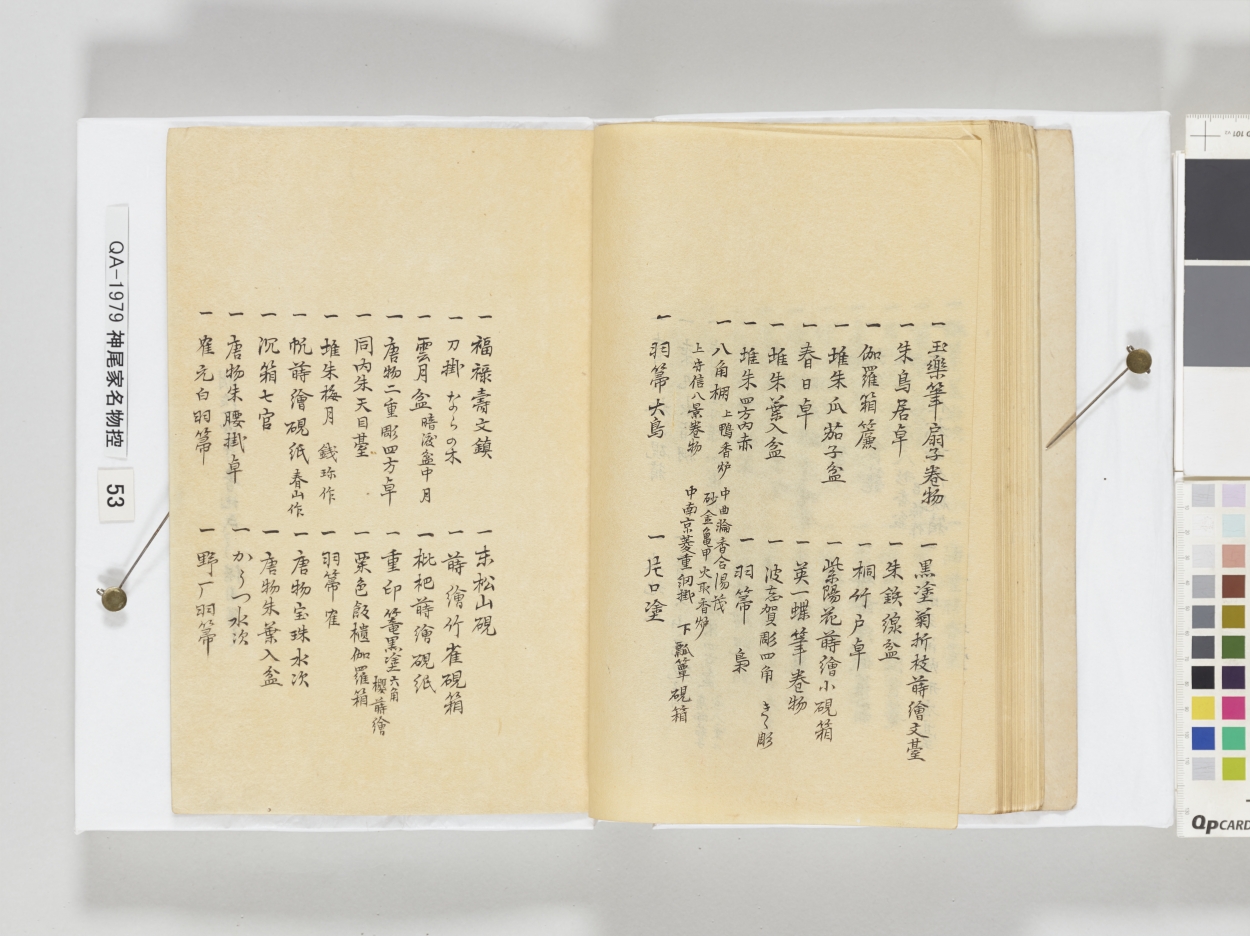 一 玉樂筆扇子巻物
一 黒塗菊折枝蒔繪文臺
一 朱鳥居卓
一 朱鉄線盆
一 伽羅箱簾
一 桐竹戸卓
一 堆朱瓜茄子盆
一 紫陽花蒔繪小硯箱
一 春日卓
一 英一蝶筆巻物
一 堆朱葉入盆
一 波志賀彫四角 きく彫
一 堆朱四方内赤
一 羽箒 梟
一 八角棚 上鴨香炉
中曲輪香合湯茂
砂金亀甲火取香炉
上守信八景巻物
中南京菱重網掛 下瓢簞硯箱
一 羽箒大鳥
一 片口塗
一 福禄壽文鎮
一 末松山硯
一 刀掛 ならの木
一 蒔繪竹雀硯箱
一 雲月盆 暗渡盆中月
一 枇杷蒔繪硯紙
一 唐物二重彫四方卓
一 重印篭黒塗六角 櫻蒔繪
一 同内朱天目臺
一 栗色飯櫃伽羅箱
一 堆朱梅月 銭珎作
一 羽箒 隺
一 帆蒔繪硯紙 春山作
一 唐物宝珠水次
一 沉箱七官
一 唐物朱葉入盆
一 唐物朱腰掛卓
一 からつ水次
一 隺元白羽箒
一 野厂羽箒
QA-1979 神尾家名物控
53
QPCARD
101